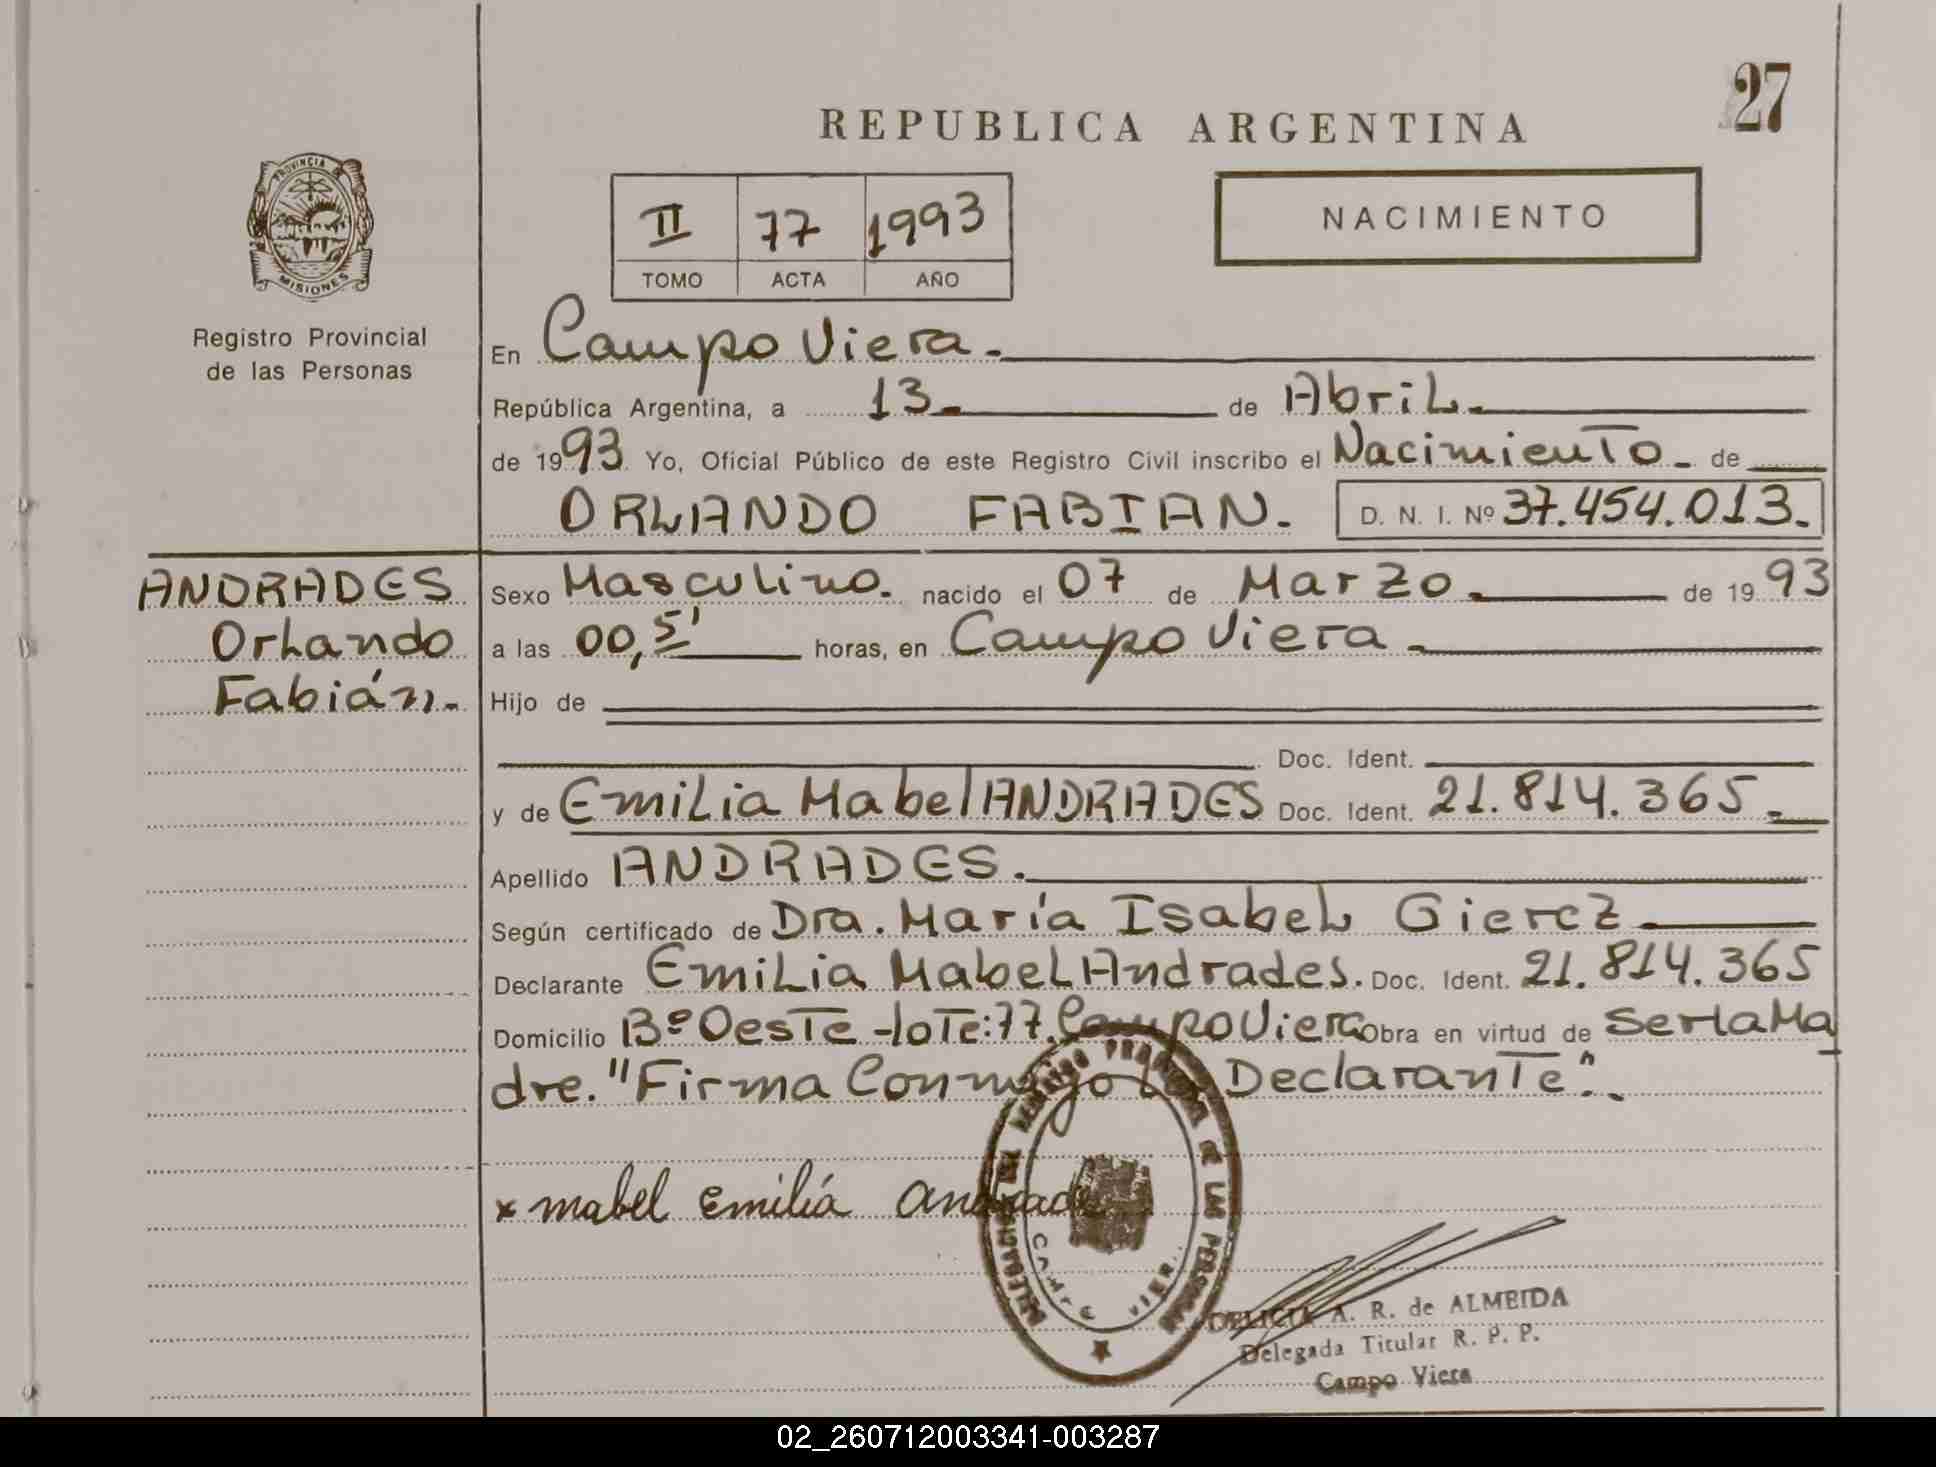 27
REPUBLICA ARGENTINA
PROVINCIA
MISIONES
Registro Provincial
de las Personas
II 77 1993
TOMO ACTA AÑO
NACIMIENTO
En Campo Viera.
República Argentina, a 13 de Abril.
de 1993 Yo, Oficial Público de este Registro Civil inscribo el Nacimiento de
ORLANDO FABIAN. D. N. I. Nº 37.454.013.
ANDRADES
Orlando
Fabián.
Sexo Masculino. nacido el 07 de Marzo de 1993
a las 00,5' horas, en Campo Viera
Hijo de
Doc. Ident.
y de Emilia Mabel ANDRADES Doc. Ident. 21.814.365
Apellido ANDRADES.
Según certificado de Dra. María Isabel Giercz
Declarante Emilia Mabel Andrades. Doc. Ident. 21.814.365
Domicilio Bº Oeste - lote: 77. Campo Viera obra en virtud de ser la Ma
dre. "Firma Conmigo la Declarante".
x mabel Emilia Andrade
DELEGACION DEL REGISTRO PROVINCIAL DE LAS PERSONAS
CAMPO VIERA
DELICIA A. R. de ALMEIDA
Delegada Titular R. P. P.
Campo Viera
02_260712003341-003287